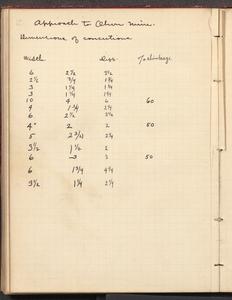 Approach to Ohio mine.
Dimensions of concretions
Width Dips. % shrinkage
6 2½ 2½
2½ 3/4 1¾
3 1¼ 1¾
3 1¼ 1¾
10 4 6 60
4 1¾ 2½
6 2½ 2½
4" 2 2 50
5 2¾ 2¼
3½ 1½ 2
6 3 3 50
6 1¾ 4¼
3½ 1¼ 2½